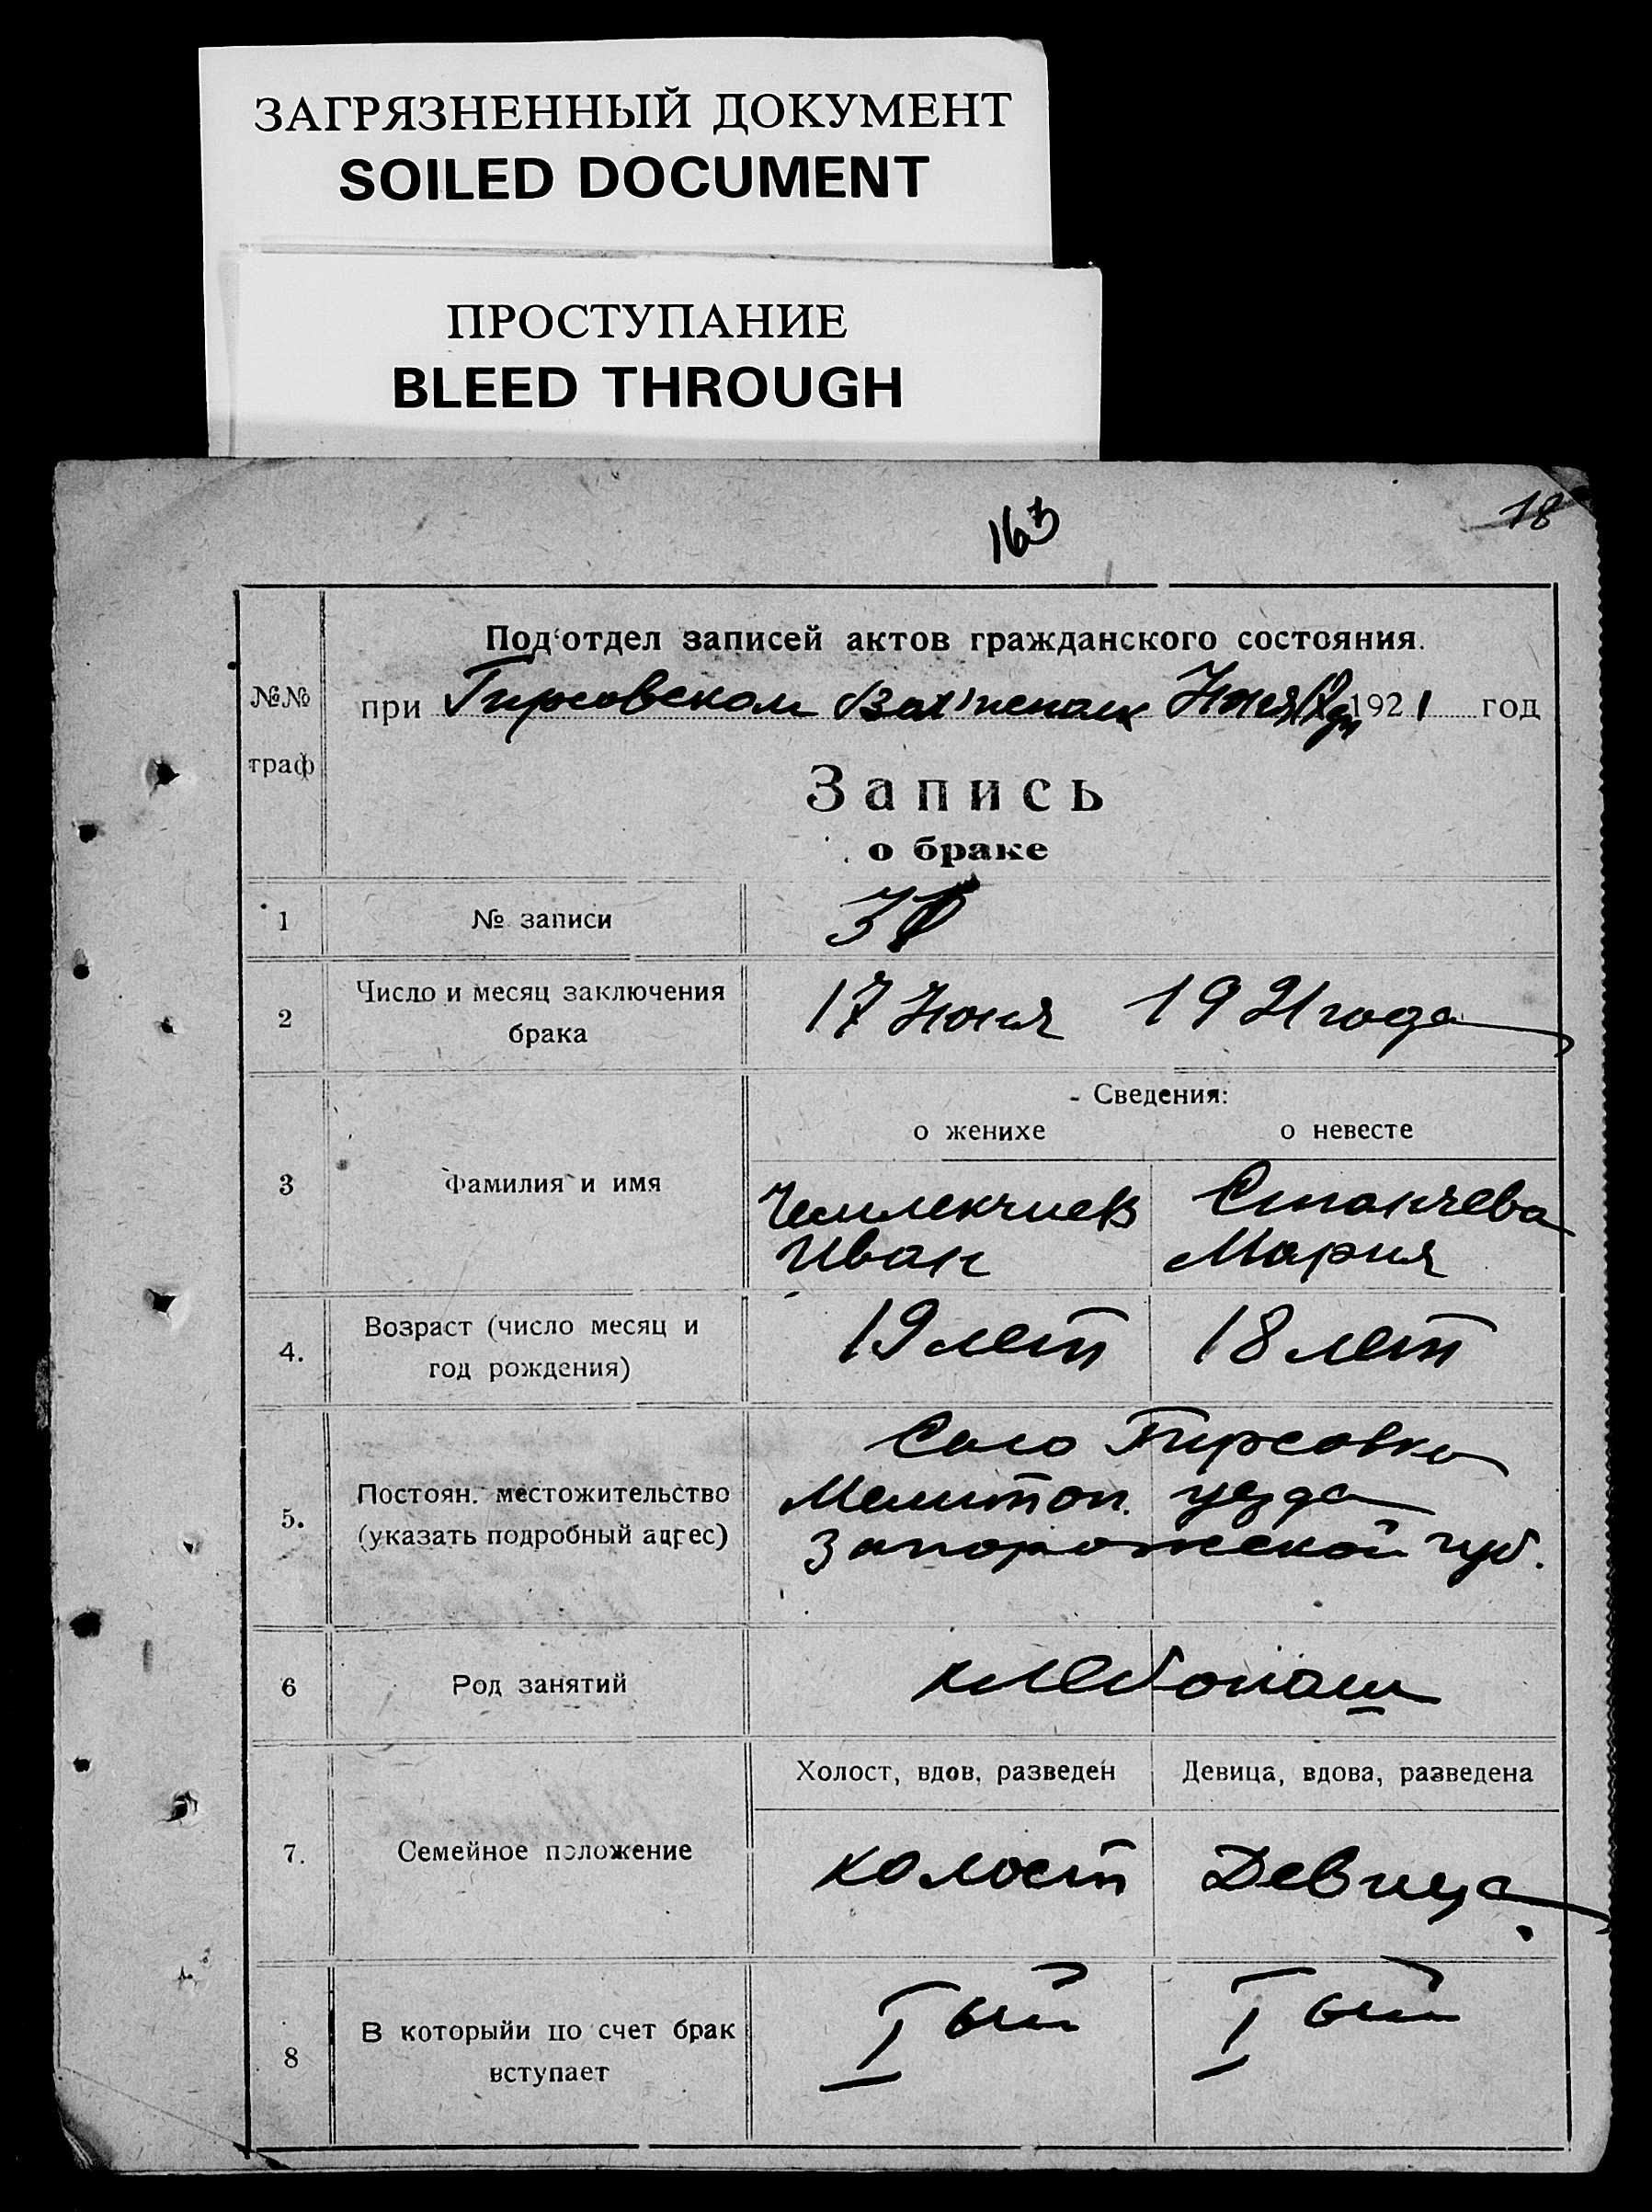 ЗАГРЯЗНЕННЫЙ ДОКУМЕНТ
SOILED DOCUMENT
ПРОСТУПАНИЕ
BLEED THROUGH
163
18
Под'отдел записей актов гражданского состояния.
№№
граф
при Гирсовском Июня 1921 год
Запись
о браке
1 № записи
2 Число и месяц заключения
брака
17 Июня 1921 года
Сведения:
о женихе о невесте
3 Фамилия и имя
Чемлекчиев Станчева
Иван Мария
4. Возраст (число месяц и
год рождения)
19 лет 18 лет
5. Постоян. местожительство
(указать подробный адрес)
Село Гирсовка
Мелитоп. уезда
Запорожской губ.
6 Род занятий
хлебопаш
Холост, вдов, разведен Девица, вдова, разведена
7. Семейное положение
холост Девица
8 В которыйи по счет брак
вступает
I ый I ый